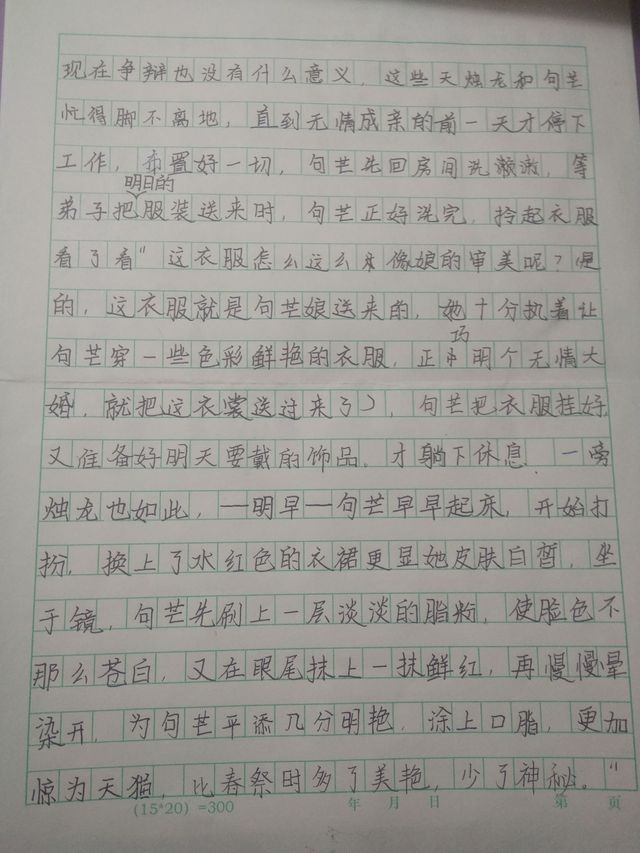 现在争辩也没有什么意义，这些天烛龙和句芒
忙得脚不离地，直到无情成亲的前一天才停下
工作，布置好一切，句芒先回房间洗漱漱，等
明日的
弟子把服装送来时，句芒正好洗完，拎起衣服
看了看"这衣服怎么这么像娘的审美呢？是
的，这衣服就是句芒娘送来的，她十分执着让
巧
句芒穿一些色彩鲜艳的衣服，正明个无情大
婚，就把这衣裳送过来了），句芒把衣服挂好
又准备好明天要戴的饰品。才躺下休息．一旁
烛龙也如此，——明早——句芒早早起床，开始打
扮，换上了水红色的衣裙更显她皮肤白皙，坐
于镜，句芒先刷上一层淡淡的脂粉，使脸色不
那么苍白，又在眼尾抹上一抹鲜红，再慢慢晕
染开，为句芒平添几分明艳，涂上口脂，更加
惊为天猫，比春祭时多了美艳，少了神秘。"
(15*20) =300 年 月 日 第 页